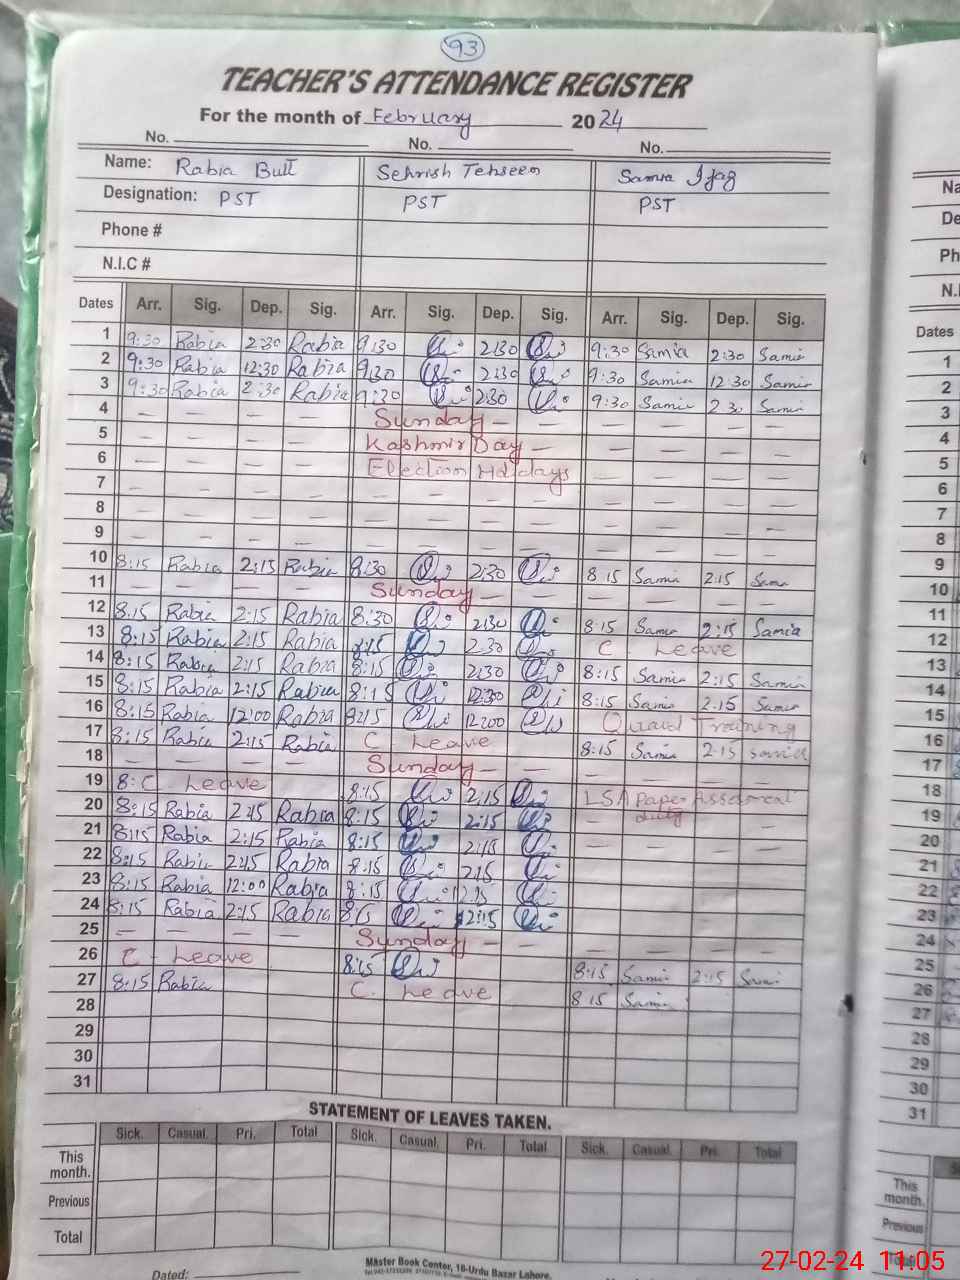 93
TEACHER'S ATTENDANCE REGISTER
For the month of February 2024
No. No. No.
Name: Rabia Butt Sehrish Tehseen Samia Ijaz
Designation: PST PST PST
Phone #
N.I.C #
Dates Arr. Sig. Dep. Sig. Arr. Sig. Dep. Sig. Arr. Sig. Dep. Sig.
1 9:30 Rabia 2:30 Rabia 9:30 2:30 9:30 Samia 2:30 Samia
2 9:30 Rabia 12:30 Rabia 9:30 2:30 9:30 Samia 12:30 Samia
3 9:30 Rabia 2:30 Rabia 9:30 2:30 9:30 Samia 2 30 Samia
4 — — — — Sunday — — — — —
5 — — — — Kashmir Day — — — — —
6 — — — — Election Holidays — — — —
7 — — — — — — — — — — — —
8 — — — — — — — — — — — —
9 — — — — — — — — — — — —
10 8:15 Rabia 2:15 Rabia 8:30 2:30 8 15 Samia 2:15 Samia
11 — — — — Sunday — — — — —
12 8:15 Rabia 2:15 Rabia 8:30 2:30 8:15 Samia 2:15 Samia
13 8:15 Rabia 2:15 Rabia 8:15 2 30 C Leave
14 8:15 Rabia 2:15 Rabia 8:15 2:30 8:15 Samia 2:15 Samia
15 8:15 Rabia 2:15 Rabia 8:15 12:30 8:15 Samia 2.15 Samia
16 8:15 Rabia 12:00 Rabia 8:15 12:00 Training
17 8:15 Rabia 2:15 Rabia C Leave 8:15 Samia 2:15 Samia
18 — — — — Sunday — — — — —
19 8: C Leave 8:15 2:15 LSA Paper Assesment
duty
20 8:15 Rabia 2:15 Rabia 8:15 2:15 — — — —
21 8:15 Rabia 2:15 Rabia 8:15 2:15 — — — —
22 8:15 Rabia 2:15 Rabia 8:15 2:15
23 8:15 Rabia 12:00 Rabia 8:15
24 8:15 Rabia 2:15 Rabia 8:15 2:15
25 — — — — Sunday — — — — —
26 C - Leave 8:15 8:15 Samia 2:15 Samia
27 8:15 Rabia C. Leave 8 15 Samia
28
29
30
31
STATEMENT OF LEAVES TAKEN.
Sick. Casual. Pri. Total Sick. Casual. Pri. Total Sick. Casual. Pri. Total
This
month.
Previous
Total
Dated:
Master Book Center, 16-Urdu Bazar Lahore.
Na
De
Ph
N.I
Dates
1
2
3
4
5
6
7
8
9
10
11
12
13
14
15
16
17
18
19
20
21
22
23
24
25
26
27
28
29
30
31
This
month.
Previous
27-02-24 11:05